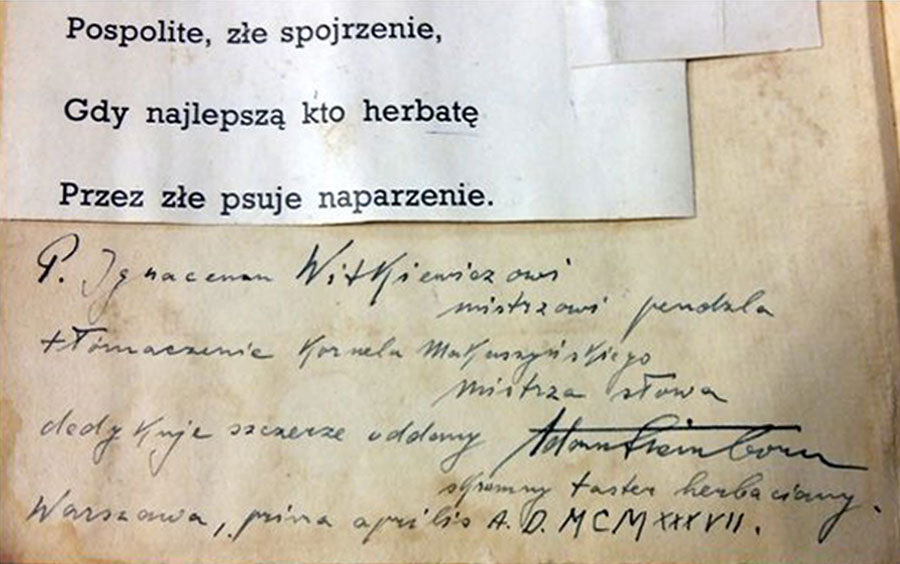 Pospolite, złe spojrzenie,
Gdy najlepszą kto herbatę
Przez złe psuje naparzenie.
P. Ignacemu Witkiewiczowi
mistrzowi pendzla
tłómaczenie Kornela Makuszyńskiego
mistrza słowa
dedykuje szczerze oddany Adam
skromny taster herbaciany.
Warszawa, prima aprilis A. D. MCMXXXVII.